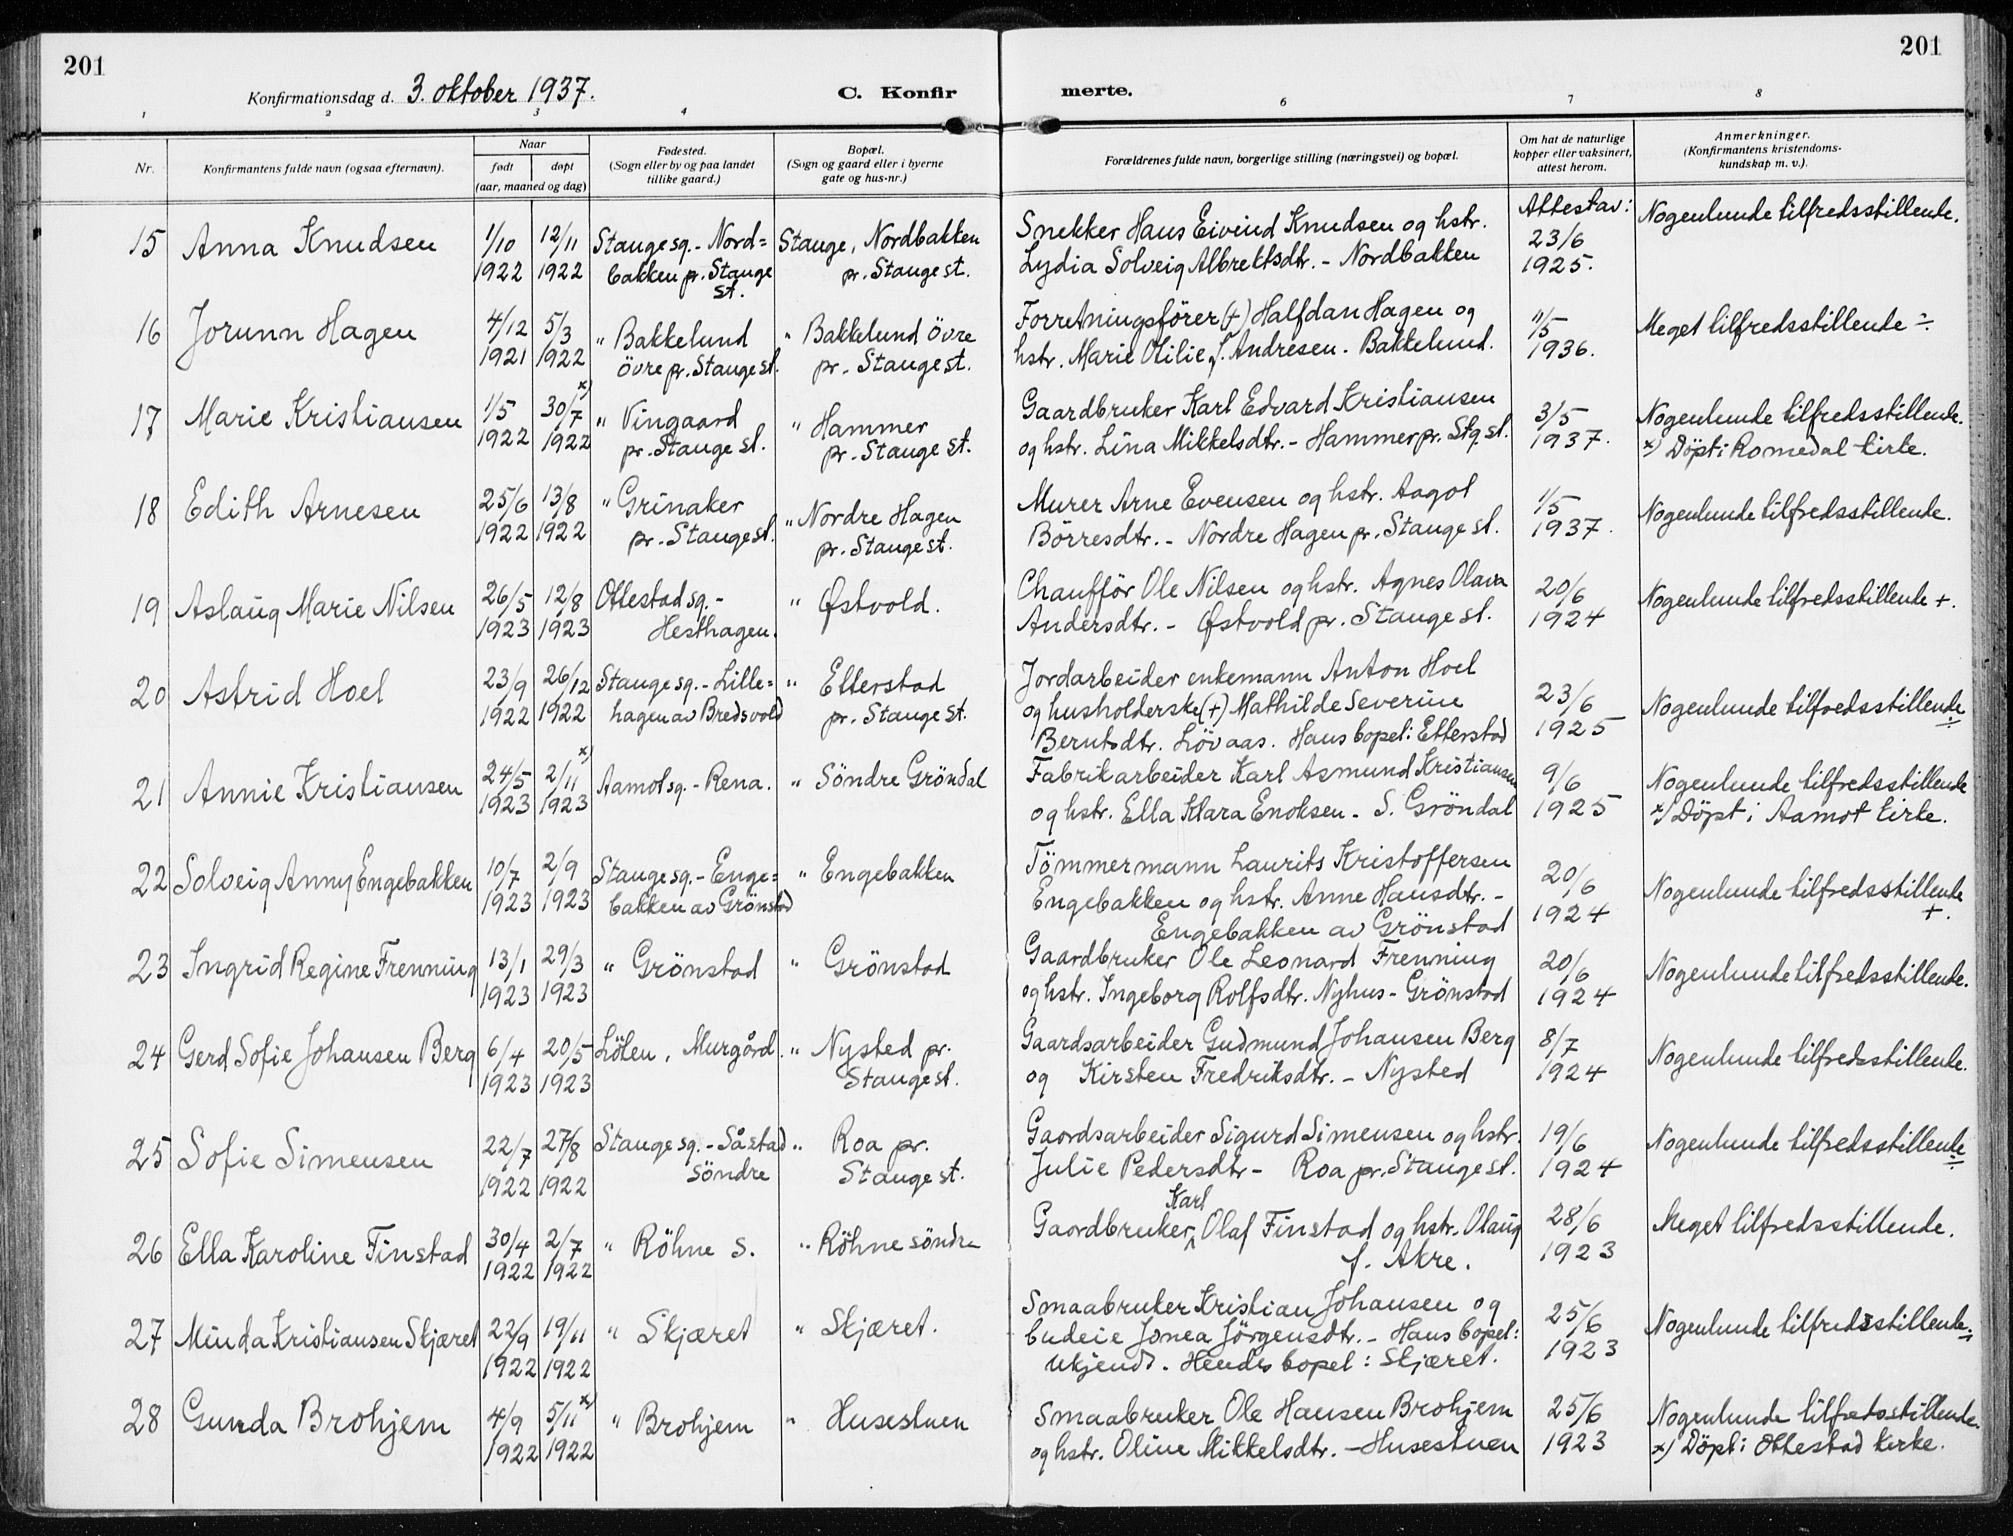 201
201
Konfirmationsdag d. 3. oktober 1937.
C. Konfir
merte.
1 2 3 4 6 7 8
Nr.
Konfirmantens fulde navn (ogsaa efternavn).
Naar
født
døpt
(aar, maaned og dag)
Fødested.
(Sogn eller by og paa landet
tillike gaard.)
Bopæl.
(Sogn og gaard eller i byerne
gate og hus-nr.)
Forældrenes fulde navn, borgerlige stilling (næringsvei) og bopæl.
Om hat de naturlige
kopper eller vaksinert,
attest herom.
Anmerkninger.
(Konfirmantens kristendoms-
kundskap m. v.).
15 Anna Knudsen 1/10 1922 12/11 1922
Stange sg. - Nord=
bakken pr. Stange
st.
Stange, Nordbakken
pr. Stange st.
Snekker Hans Eivind Knudsen og hstr.
Lydia Solveig Albrektsdtr. - Nordbakken
Attest av:
23/6
1925.
Nogenlunde tilfredsstillende.
16 Jorunn Hagen 4/12 1921 5/3 1922
" Bakkelund
övre pr. Stange st.
" Bakkelund övre
pr. Stange st.
Forretningsförer (+) Halfdan Hagen og
hstr. Marie Otilie f. Andresen. Bakkelund.
11/5
1936.
Meget tilfredsstillende ÷
17 Marie Kristiansen 1/5 1922 30/7 x) 1922
" Vingaard
pr. Stange st.
" Hammer
pr. Stange st.
Gaardbruker Karl Edvard Kristiansen
og hstr. Lina Mikkelsdtr. - Hammer pr. Stg. st.
3/5
1937.
Nogenlunde tilfredsstillende.
x) Döpt i Romedal kirke.
18 Edith Arnesen 25/6 1922 13/8 1922
" Grinaker
pr. Stange st.
" Nordre Hagen
pr. Stange st.
Murer Arne Evensen og hstr. Aagot
Börresdtr. - Nordre Hagen pr. Stange st.
1/5
1937.
Nogenlunde tilfredsstillende.
19 Aslaug Marie Nilsen 26/5 1923 12/8 1923
Ottestad sg. -
Hesthagen.
" Østvold.
Chaufför Ole Nilsen og hstr. Agnes Olava
Andersdtr. - Østvold pr. Stange st.
20/6
1924
Nogenlunde tilfredsstillende +.
20 Astrid Hoel 23/9 1922 26/12 1922
Stange sg. - Lille=
hagen av Bredsvold
" Etterstad
pr. Stange st.
Jordarbeider enkemann Anton Hoel
og husholderske (+) Mathilde Severine
Berntsdtr. Lövaas. Hans bopel: Etterstad
23/6
1925
Nogenlunde tilfredsstillende
÷
21 Annie Kristiansen 24/5 1923 2/11 x) 1923
Aamot sg. - Rena.
" Söndre Gröndal
Fabrikarbeider Karl Asmund Kristiansen
og hstr. Ella Klara Enoksen. S. Gröndal
9/6
1925
Nogenlunde tilfredsstillende
x) Döpt i Aamot kirke.
22 Solveig Anny Engebakken 10/7 1923 2/9 1923
Stange sg. - Enge=
bakken av Grönstad
" Engebakken
Tömmermann Laurits Kristoffersen
Engebakken og hstr. Anne Hansdtr. -
Engebakken av Grönstad
20/6
1924
Nogenlunde tilfredsstillende
+.
23 Ingrid Regine Frenning 13/1 1923 29/3 1923
" Grönstad
" Grönstad
Gaardbruker Ole Leonard Frenning
og hstr. Ingeborg Rolfsdtr. Nyhus - Grönstad
20/6
1924
Nogenlunde tilfredsstillende.
24 Gerd Sofie Johansen Berg 6/4 1923 20/5 1923
Löten, Murgård.
" Nysted pr.
Stange st.
Gaardsarbeider Gudmund Johansen Berg
og Kirsten Fredriksdtr. - Nysted
8/7
1924
Nogenlunde tilfredsstillende.
25 Sofie Simensen 22/7 1922 27/8 1922
Stange sg. - Såstad
Söndre
" Roa pr.
Stange st.
Gaardsarbeider Sigurd Simensen og hstr.
Julie Pedersdtr - Roa pr. Stange st.
19/6
1924
Nogenlunde tilfredsstillende
÷
26 Ella Karoline Finstad 30/4 1922 2/7 1922
" Röhne s.
" Röhne söndre
Karl
Gaardbruker Olaf Finstad og hstr. Olaug
f. Akre.
28/6
1923
Meget tilfredsstillende.
27 Minda Kristiansen Skjæret 22/9 1922 19/11 1922
" Skjæret
" Skjæret.
Smaabruker Kristian Johansen og
budeie Jonea Jörgensdtr. - Hans bopel:
ukjendt. Hendes bopel: Skjæret.
25/6
1923
Nogenlunde tilfredsstillende ÷
28 Gunda Brohjem 4/9 1922 5/11 x) 1922
" Brohjem
" Husestuen
Smaabruker Ole Hansen Brohjem
og hstr. Oline Mikkelsdtr. - Husestuen
25/6
1923
Nogenlunde tilfredsstillende.
x) Döpt i Ottestad kirke.